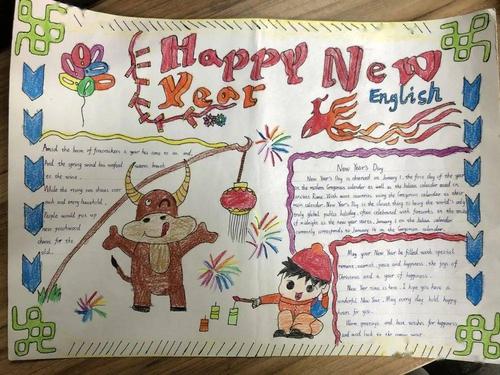 Happy New
Year
English
Amid the boom of firecrackers a year has come to an end,
And the spring wind has wafted warm breath
to the wine.
While the rising sun shines over
each and every household,
People would put up
new peachwood
charm for the
old.
New Year's Day
New Year's Day is observed on January 1, the first day of the year
on the modern Gregorian calendar as well as the Julian calendar used in
ancient Rome. With most countries using the Gregorian calendar as their
main calendar, New Year's Day is the closest thing to being the world's only
truly global public holiday, often celebrated with fireworks at the stroke
of midnight as the new year starts. January 1 on the Julian calendar
currently corresponds to January 14 on the Gregorian calendar.
May your New Year be filled with special
moment, warmth, peace and happiness, the joys of
Christmas and a year of happiness.
New Year time is here. I hope you have a
wonderful New Year. May every day hold happy
hours for you.
Warm greetings and best wishes for happiness
and good luck in the coming year.